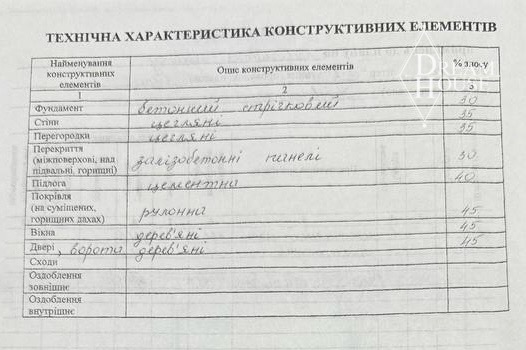 ТЕХНІЧНА ХАРАКТЕРИСТИКА КОНСТРУКТИВНИХ ЕЛЕМЕНТІВ
Найменування конструктивних елементів Опис конструктивних елементів % зносу
1 2 3
Фундамент бетонний стрічковий 30
Стіни цегляні 35
Перегородки цегляні 35
Перекриття (міжповерхові, над підвальні, горищні) залізобетонні панелі 30
Підлога цементна 40
Покрівля (на суміщених, горищних дахах) рулонна 45
Вікна дерев'яні 45
Двері, ворота дерев'яні 45
Сходи
Оздоблення зовнішнє
Оздоблення внутрішнє
DREAM HOUSE